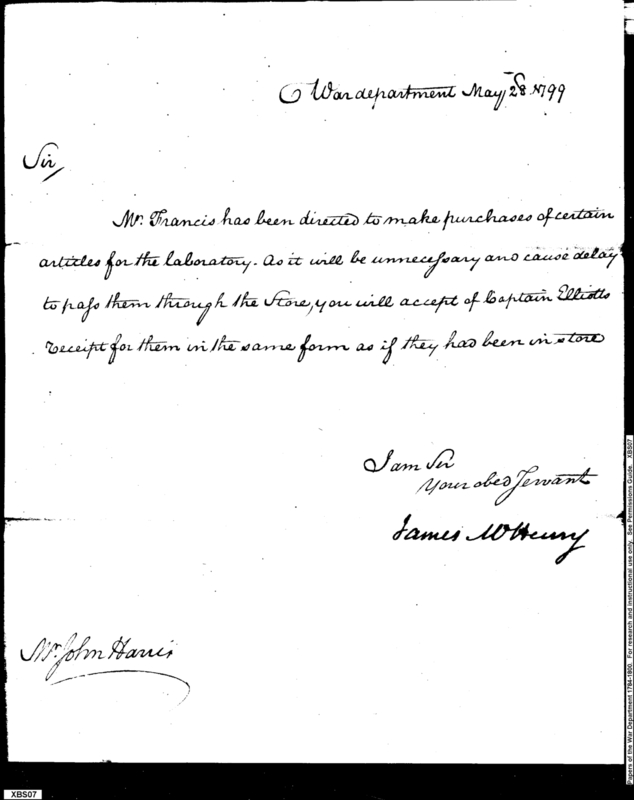 War department May 28. 1799
Sir
Mr. Francis has been directed to make purchases of certain
articles for the laboratory. As it will be unnecessary and cause delay
to pass them through the Store, you will accept of Captain Elliotts
receipt for them in the same form as if they had been in store
I am Sir
Your obed Servant
James McHenry
Mr. John Harris
XBS07
Papers of the War Department 1784-1800. For research and instructional use only. See Permissions Guide. XBS07